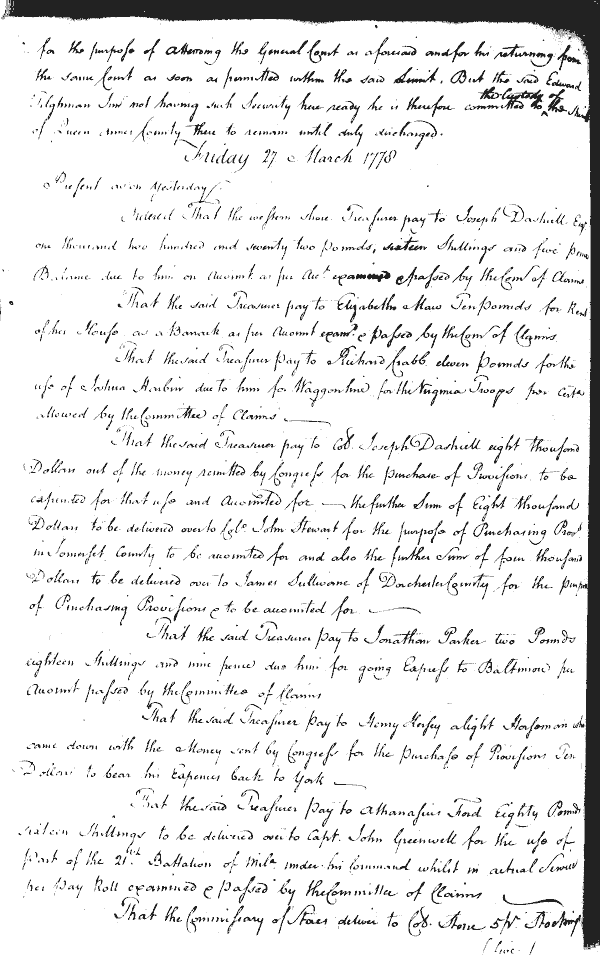 for the purpose of attending the General Court as aforesaid and for his returning from
the same Court as soon as permitted within the said limit. But the said Edward
Tilghman Junr not having such Security here ready he is therefore committed to the Custody of the Sheriff
of Queen Annes County there to remain until duly discharged.
Friday 27 March 1778
Present as on Yesterday.
Ordered That the western shore Treasurer pay to Joseph Dashiell Esqr
one thousand two hundred and seventy two pounds, sixteen Shillings and five pence
Balance due to him on Account as per Acct. examined & passed by the Com of Claims
That the said Treasurer pay to Elizabeth Maw Ten pounds for Rent
of her House as a Barrack as per Account exam.d & passed by the Com of Claims
That the said Treasurer pay to Richard Crabb eleven pounds for the
use of Joshua Harbin due to him for Waggon hire for the Virginia Troops per Certe
allowed by the Committee of Claims
That the said Treasurer pay to Col. Joseph Dashiell eight thousand
Dollars out of the money remitted by Congress for the purchase of Provisions to be
expended for that use and Accounted for — the further Sum of Eight thousand
Dollars to be delivered over to Col. John Stewart for the purpose of Purchasing Provs
in Somerset County to be accounted for and also the further Sum of four thousand
Dollars to be delivered over to James Sullivane of Dorchester County for the purpose
of Purchasing Provisions & to be accounted for
That the said Treasurer pay to Jonathan Parker two Pounds
eighteen Shillings and nine pence due him for going Express to Baltimore per
Account passed by the Committee of Claims
That the said Treasurer pay to Henry Hersey a light Horseman who
came down with the Money sent by Congress for the purchase of Provisions Ten
Dollars to bear his Expences back to York
That the said Treasurer pay to Athanasius Ford Eighty Pounds
sixteen Shillings to be delivered over to Capt. John Greenwell for the use of
part of the 21st Battalion of Mila under his Command whilst in actual Service
per Pay Roll examined & passed by the Committee of Claims
That the Commissary of Stores deliver to Col. Stone 5 pr. Stockings
(five)